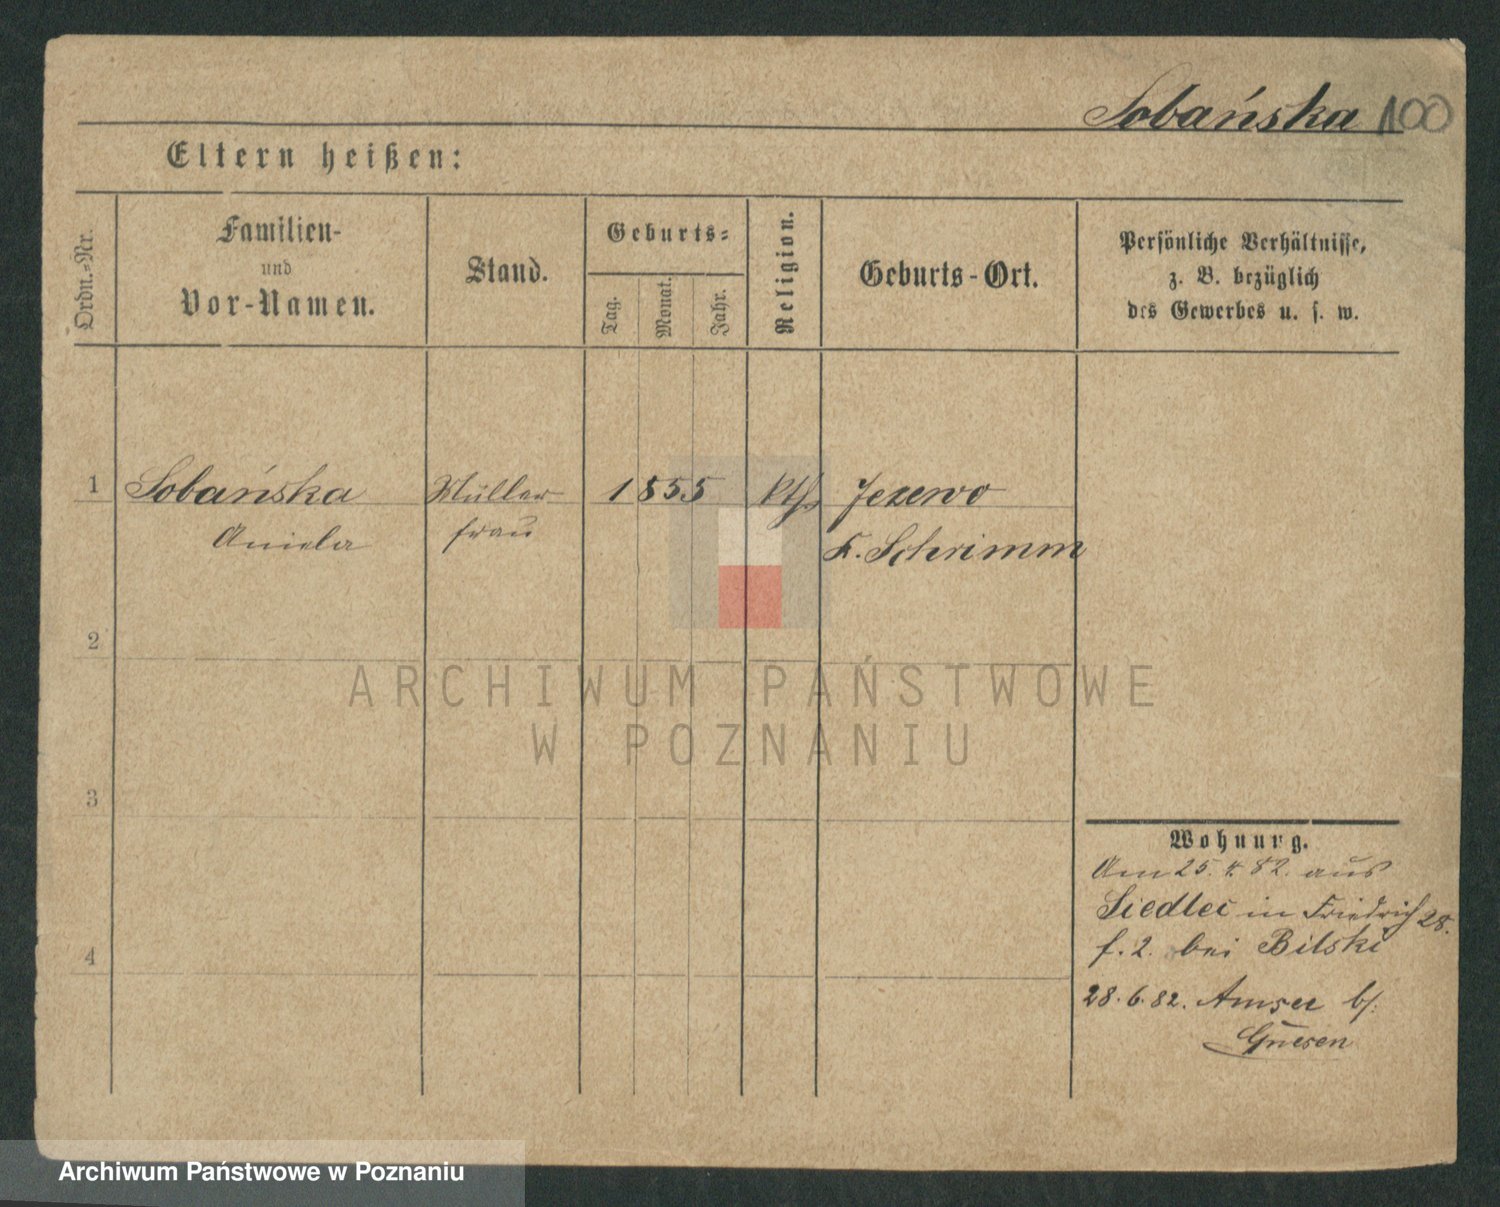 Sobańska 100
Eltern heißen:
Ordn.-Nr.
Familien-
und
Vor-Namen.
Stand.
Geburts-
Tag.
Monat.
Jahr.
Religion.
Geburts-Ort.
Persönliche Verhältnisse,
z. B. bezüglich
des Gewerbes u. s. w.
1 Sobańska Müller 1855 kth Jezewo
Aniela frau K. Schrimm
2
ARCHIWUM PAŃSTWOWE
W POZNANIU
3
Wohnung.
Am 25. 4. 82. aus
Siedlec in Friedrich 28.
f. 2. bei Bilski
4
28. 6. 82. Amsee b/.
Gnesen
Archiwum Państwowe w Poznaniu